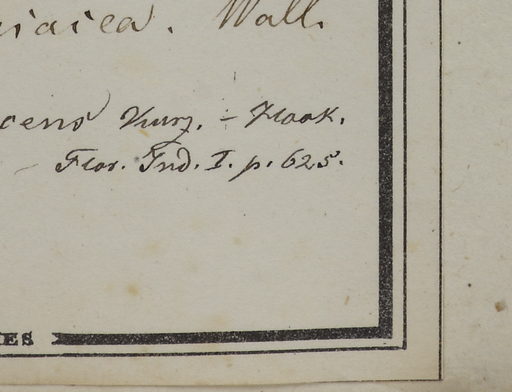 Wall.
cens Kurz. - Hook.
Flor. Ind. I. p. 625.
ES